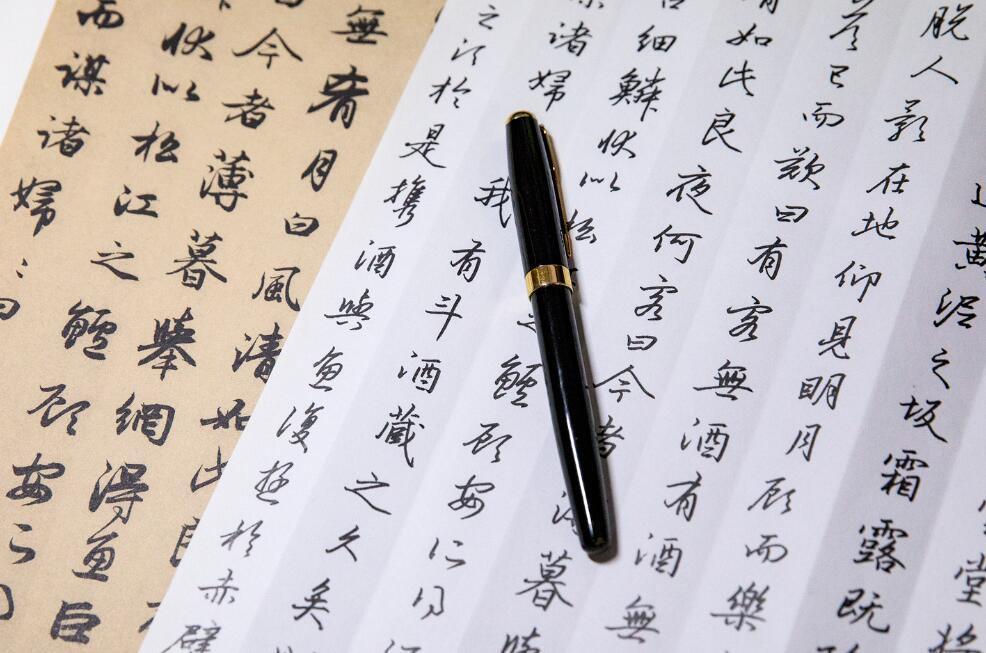 堂將
黃泥之坂霜露既
脱人影在地仰見明月顧而樂
已而歎曰有客無酒有酒無
如此良夜何客曰今者
暮
細鱗狀似松
之鱸顧安所得
諸婦
我有斗酒藏之久矣
之須於是攜酒與魚復遊於赤壁
無肴月白風清如此良
曰今者薄暮舉網得魚巨
狀似松江之鱸顧安所
而謀諸婦〻曰